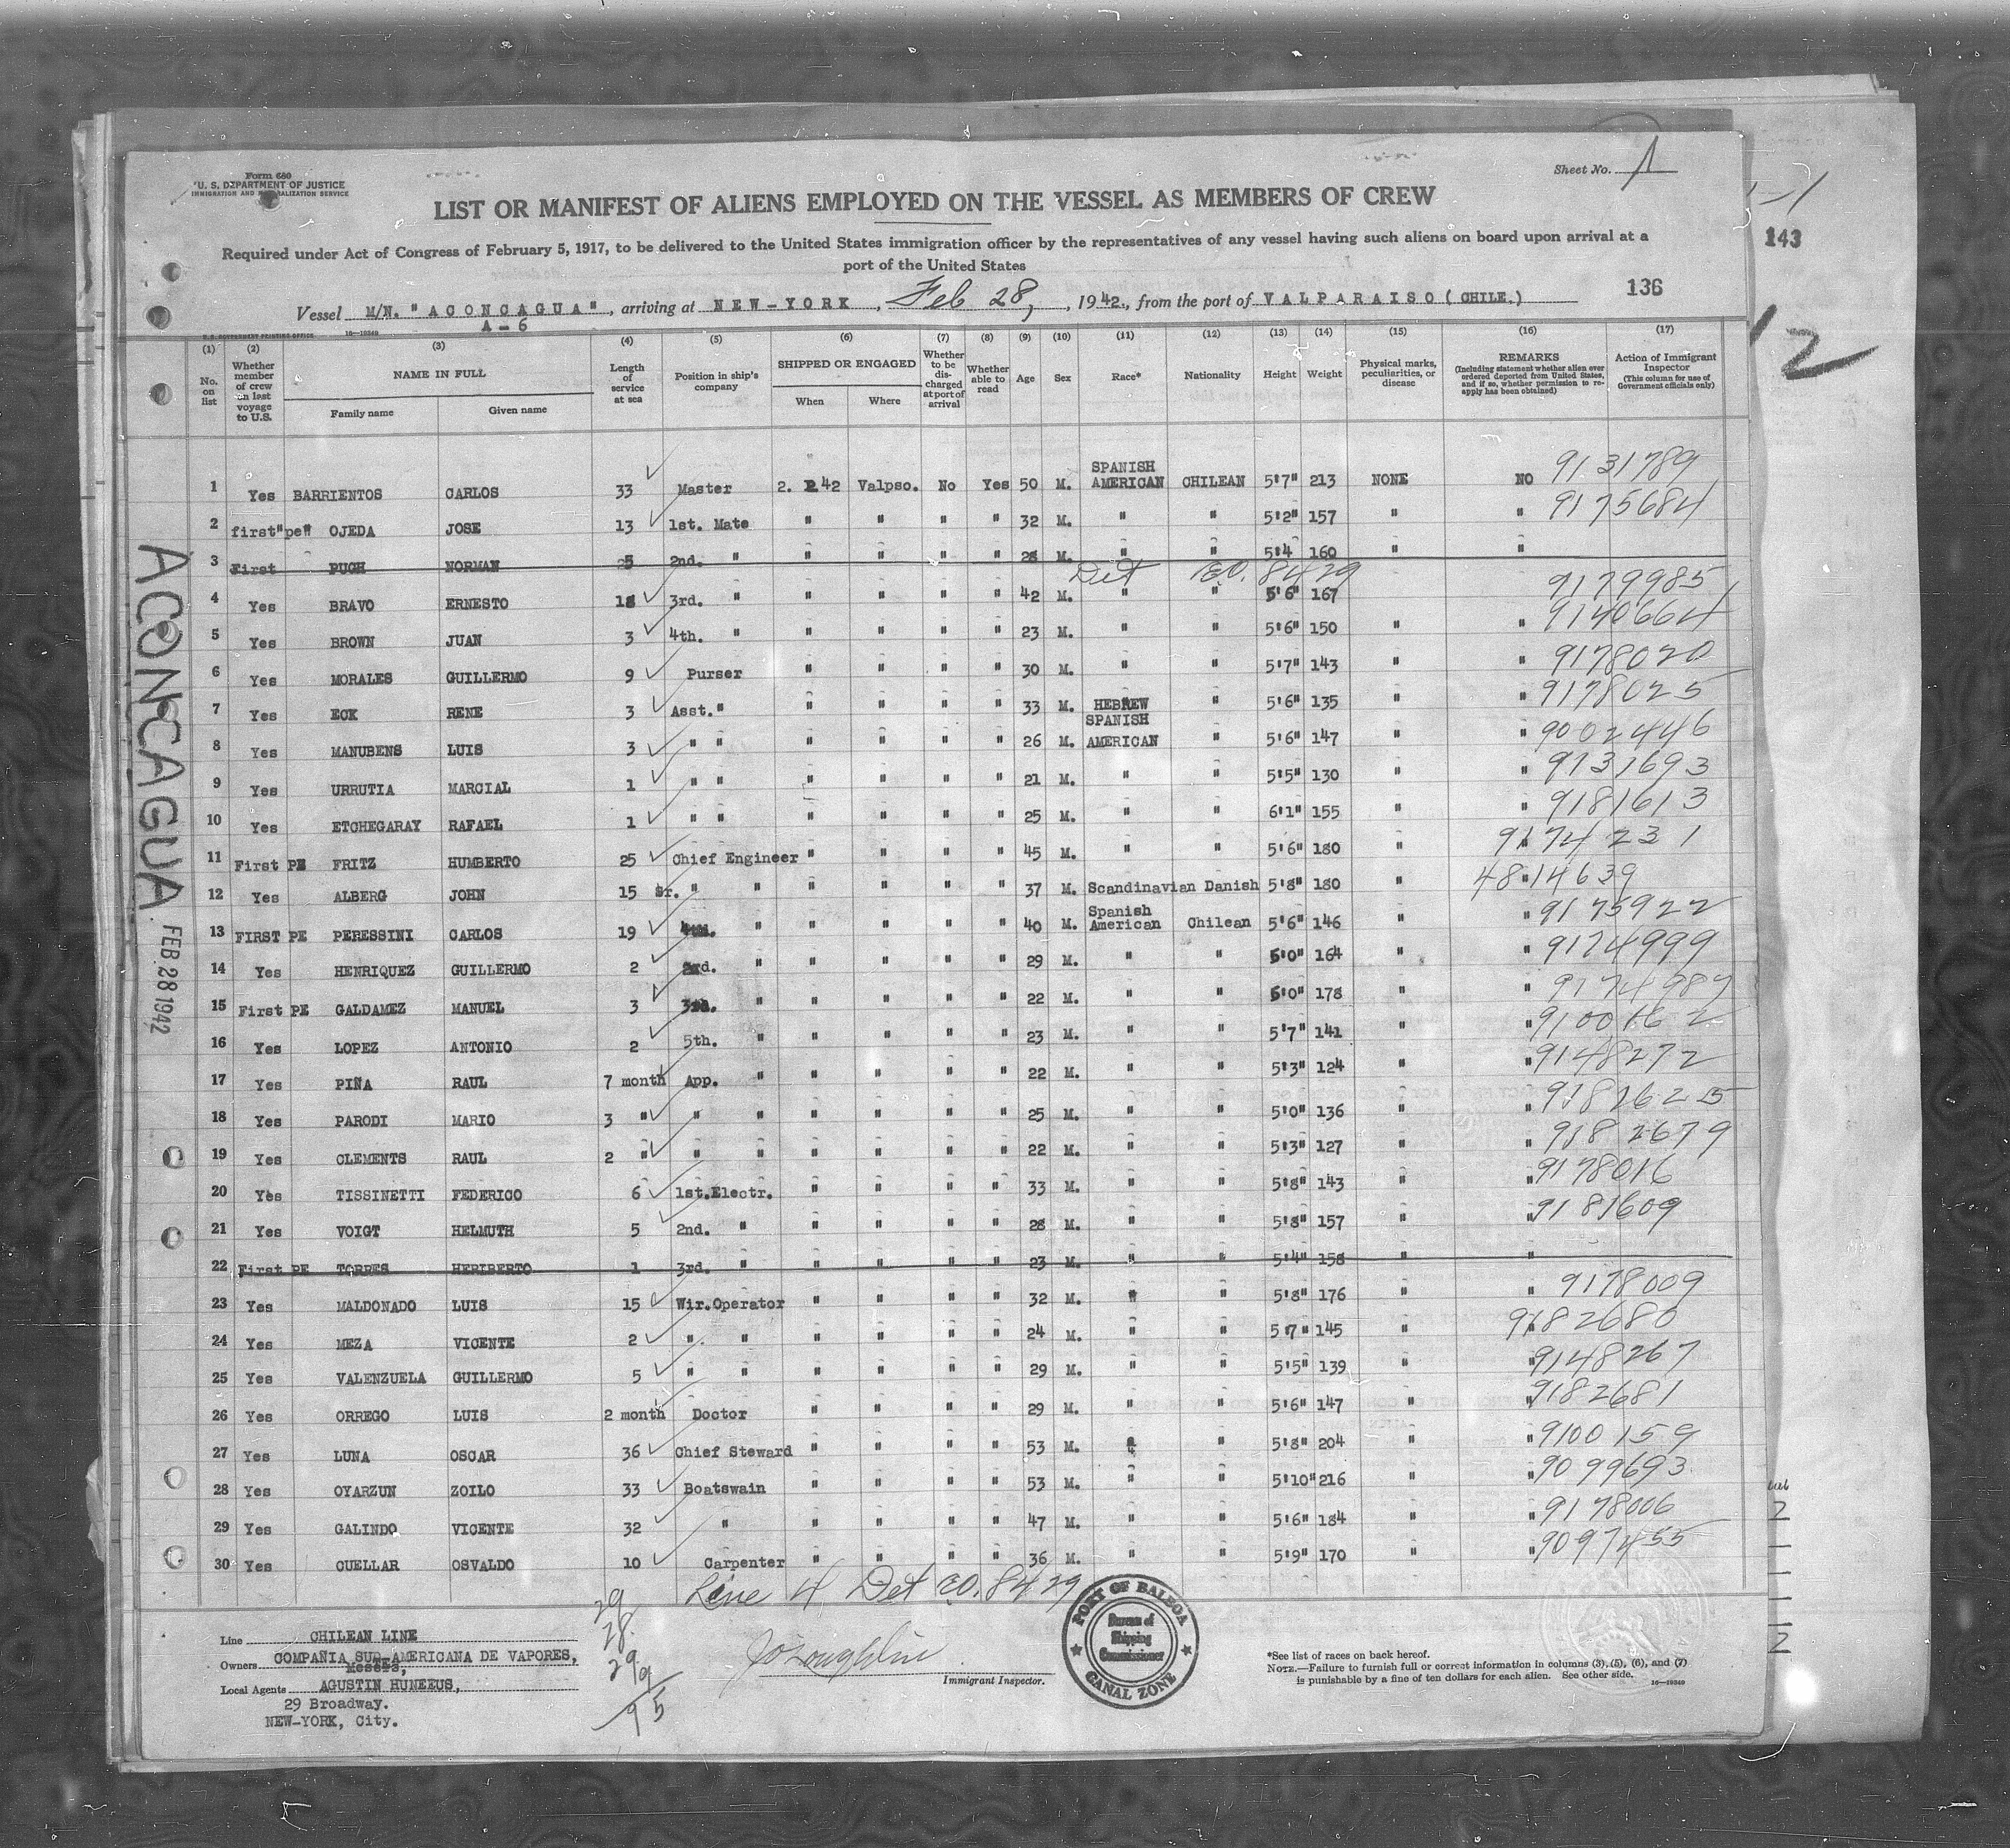 Form 680
U. S. DEPARTMENT OF JUSTICE
IMMIGRATION AND NATURALIZATION SERVICE
Sheet No. 1
LIST OR MANIFEST OF ALIENS EMPLOYED ON THE VESSEL AS MEMBERS OF CREW
Required under Act of Congress of February 5, 1917, to be delivered to the United States immigration officer by the representatives of any vessel having such aliens on board upon arrival at a
port of the United States
143
136
Vessel M/N. "ACONCAGUA", arriving at NEW-YORK, Feb 28, 1942, from the port of VALPARAISO (CHILE.)
A-6
U.S. GOVERNMENT PRINTING OFFICE 16—19349
12
(1) No. on list
(2) Whether member of crew on last voyage to U.S.
(3) NAME IN FULL Family name Given name
(4) Length of service at sea
(5) Position in ship's company
(6) SHIPPED OR ENGAGED When Where
(7) Whether to be discharged at port of arrival
(8) Whether able to read
(9) Age
(10) Sex
(11) Race*
(12) Nationality
(13) Height
(14) Weight
(15) Physical marks, peculiarities, or disease
(16) REMARKS (Including statement whether alien ever ordered deported from United States, and if so, whether permission to reapply has been obtained)
(17) Action of Immigrant Inspector (This column for use of Government officials only)
1 Yes BARRIENTOS CARLOS 33 Master 2. 2 42 Valpso. No Yes 50 M. SPANISH AMERICAN CHILEAN 5'7" 213 NONE NO 9131789
2 first "pe" OJEDA JOSE 13 1st. Mate " " " " 32 M. " " 5'2" 157 " " 9175684
3 First PUGH NORMAN 25 2nd. " " " " " 28 M. " " 5'4 160 " "
Det E.O. 8429
4 Yes BRAVO ERNESTO 18 3rd. " " " " " 42 M. " " 5'6" 167 9179985
5 Yes BROWN JUAN 3 4th. " " " " " 23 M. " " 5'6" 150 " " 9140664
6 Yes MORALES GUILLERMO 9 Purser " " " " 30 M. " " 5'7" 143 " " 9178020
7 Yes ECK RENE 3 Asst." " " " " 33 M. HEBREW " 5'6" 135 " " 9178025
8 Yes MANUBENS LUIS 3 " " " " " " 26 M. SPANISH AMERICAN " 5'6" 147 " " 9002446
9 Yes URRUTIA MARCIAL 1 " " " " " " 21 M. " " 5'5" 130 " " 9131693
10 Yes ETCHEGARAY RAFAEL 1 " " " " " " 25 M. " " 6'1" 155 " " 9181613
11 First PE FRITZ HUMBERTO 25 Chief Engineer " " " " 45 M. " " 5'6" 180 " " 9174231
12 Yes ALBERG JOHN 15 Sr. " " " " " " 37 M. Scandinavian Danish 5'8" 180 " " 4814639
13 FIRST PE PERESSINI CARLOS 19 4th. " " " " " 40 M. Spanish American Chilean 5'6" 146 " " 9175922
14 Yes HENRIQUEZ GUILLERMO 2 3rd. " " " " " 29 M. " " 5'0" 164 " " 9174999
15 First PE GALDAMEZ MANUEL 3 " " " " " 22 M. " " 5'0" 178 " " 9174987
16 Yes LOPEZ ANTONIO 2 5th. " " " " " 23 M. " " 5'7" 141 " " 9100162
17 Yes PIÑA RAUL 7 month App. " " " " " 22 M. " " 5'3" 124 " " 9148272
18 Yes PARODI MARIO 3 " " " " " " " 25 M. " " 5'0" 136 " " 9181625
19 Yes CLEMENTS RAUL 2 " " " " " " " 22 M. " " 5'3" 127 " " 9182679
20 Yes TISSINETTI FEDERICO 6 1st.Electr. " " " " 33 M. " " 5'8" 143 " " 9178016
21 Yes VOIGT HELMUTH 5 2nd. " " " " " 28 M. " " 5'8" 157 " " 9181609
22 First PE TORRES HERIBERTO 1 3rd. " " " " " 23 M. " " 5'4" 158 " "
23 Yes MALDONADO LUIS 15 Wir.Operator " " " " 32 M. " " 5'8" 176 " " 9178009
24 Yes MEZA VICENTE 2 " " " " " " 24 M. " " 5'7" 145 " " 9182680
25 Yes VALENZUELA GUILLERMO 5 " " " " " " 29 M. " " 5'5" 139 " " 9148267
26 Yes ORREGO LUIS 2 month Doctor " " " " 29 M. " " 5'6" 147 " " 9182681
27 Yes LUNA OSCAR 36 Chief Steward " " " " 53 M. " " 5'8" 204 " " 9100159
28 Yes OYARZUN ZOILO 33 Boatswain " " " " 53 M. " " 5'10" 216 " " 9099693
29 Yes GALINDO VICENTE 32 " " " " " 47 M. " " 5'6" 184 " " 9178006
30 Yes CUELLAR OSVALDO 10 Carpenter " " " " 36 M. " " 5'9" 170 " " 9097455
Line 4 Det E.O. 8429
ACONCAGUA FEB 28 1942
29
28
29
9
95
Line CHILEAN LINE
Owners COMPAÑIA SUD AMERICANA DE VAPORES,
Messrs,
Local Agents AGUSTIN HUNEEUS,
29 Broadway.
NEW-YORK, City.
J O'Loughlin
Immigrant Inspector.
PORT OF BALBOA
Bureau of Shipping Commissioner
CANAL ZONE
*See list of races on back hereof.
NOTE.—Failure to furnish full or correct information in columns (3), (5), (6), and (7)
is punishable by a fine of ten dollars for each alien. See other side.
16—19349